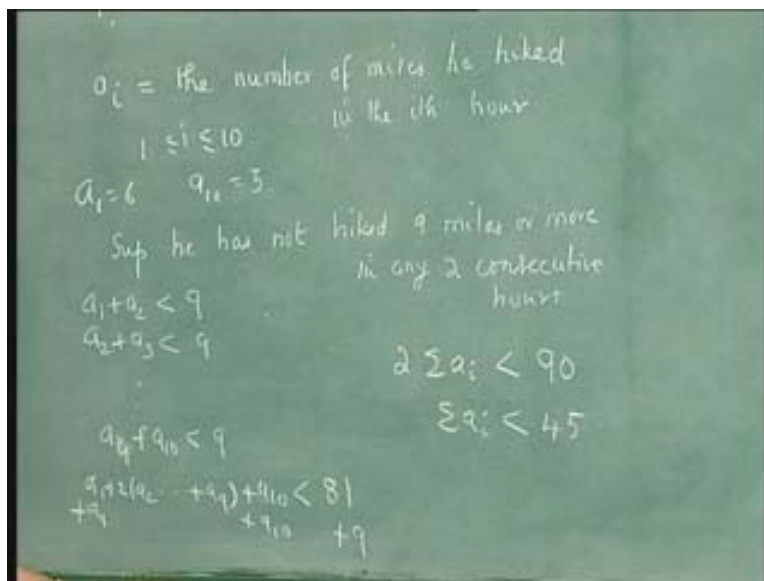 a_i = the number of miles he hiked
in the ith hour
1 ≤ i ≤ 10
a_1 = 6 a_10 = 3
Sup he has not hiked 9 miles or more
in any 2 consecutive
hours
a_1 + a_2 < 9
a_2 + a_3 < 9
2 Σa_i < 90
Σa_i < 45
a_9 + a_10 < 9
a_1 + 2(a_2 + a_9) + a_10 < 81
+a_1 +a_10 +9